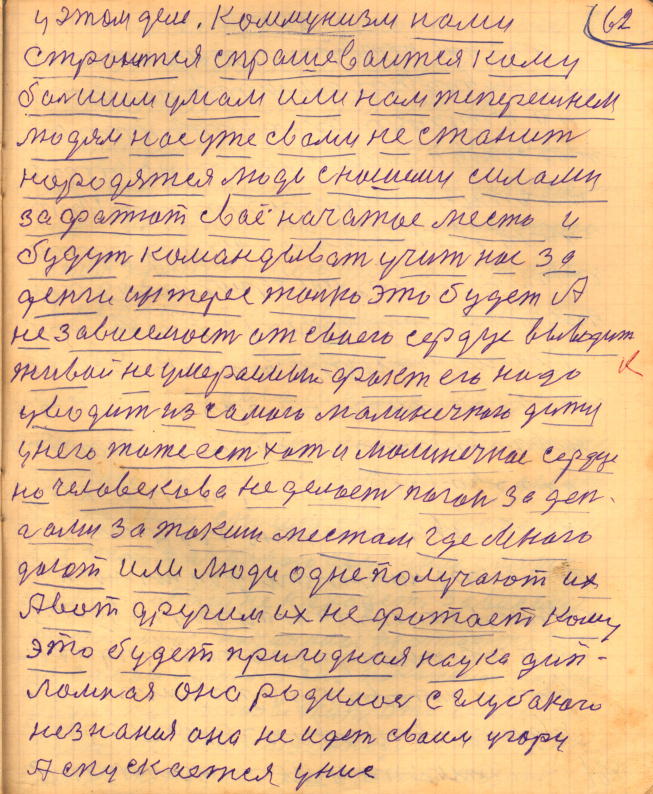 62
у этом деле. Коммунизм нами
строится спрашеваится кому
болшим умам или нам теперешнем
людям нас уже свами не станит
народятся люди снашими силами
зафатют сваё начатое месть и
будут командыват учит нас за
денги интерес толко это будет А
не зависемост от своего сердце выводит
живой не умераемый факт его надо
уводит из самого малинечкого дитиу
унего тожеест хот и малинечкое сердце
но человекова не делает погон за ден-
гами за таким местам где много
дают или люди одне получают их
А вот другим их не фатает кому
это будет пригодная наука дип-
ломная она родилас с глубакого
незнания она не идет сваим угору
А спускается унис